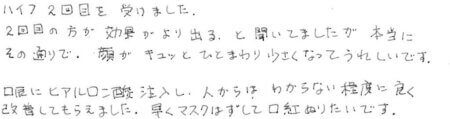 ハイフ2回目を受けました。
2回目の方が効果がより出る、と聞いてましたが本当に
その通りで、顔がキュッとひとまわり小さくなってうれしいです。
口唇にヒアルロン酸注入し、人からは わからない程度に良く
改善してもらえました。早くマスクはずして口紅ぬりたいです。